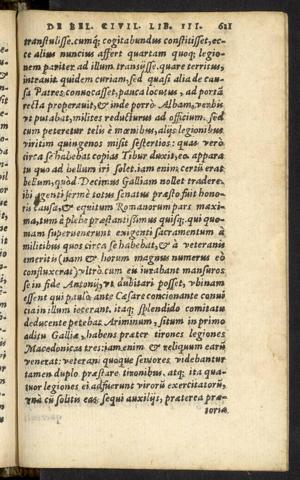 DE BEL. CIVIL. LIB. III. 621
transtulisse. cumq́; cogitabundus constitisset, ec-
ce alius nuncius affert quartam quoq; legio-
nem pariter ad illum transijsse. quare territus,
intrauit quidem curiam, sed quasi alia de cau-
sa Patres conuocasset, pauca locutus, ad portã
recta properauit, & inde porrò Albam, verbis
vt putabat, milites reducturus ad officium. sed
cum peteretur telis è mœnibus, alijs legionibus
viritim quingenos misit sestertios: quas verò
circa se habebat copias Tibur duxit, eo appara
tu quo ad bellum iri solet. iam enim certũ erat
bellum, quòd Decimus Galliam nollet tradere.
ibi agenti fermè totus senatus præsto fuit hono-
ris causa, & equitum Romanorum pars maxi-
ma, tum à plebe præstantissimus quisq;. qui quo-
mam superuenerunt exigenti sacramentum à
militibus quos circa se habebat, & à veteranis
emeritis (nam & horum magnus numerus eò
confluxerat) vltrò cum eu iurabant mansuros
se in fide Antonij, vt dubitari posset, vbinam
essent qui paulò ante Cæsare concionante conui
cia in illum iecerant. itaq; splendido comitatu
deducente petebat Ariminum, situm in primo
aditu Galliæ, habens præter tirones legiones
Macedonicas tres: iam enim & reliquum earũ
venerat: veterani quoque seniores videbantur
tamen duplo præstare tironibus. atq; ita qua-
tuor legiones ei adfuerunt virorũ exercitatorũ,
vnà cũ solitis eas sequi auxilijs, præterea præ-
toria